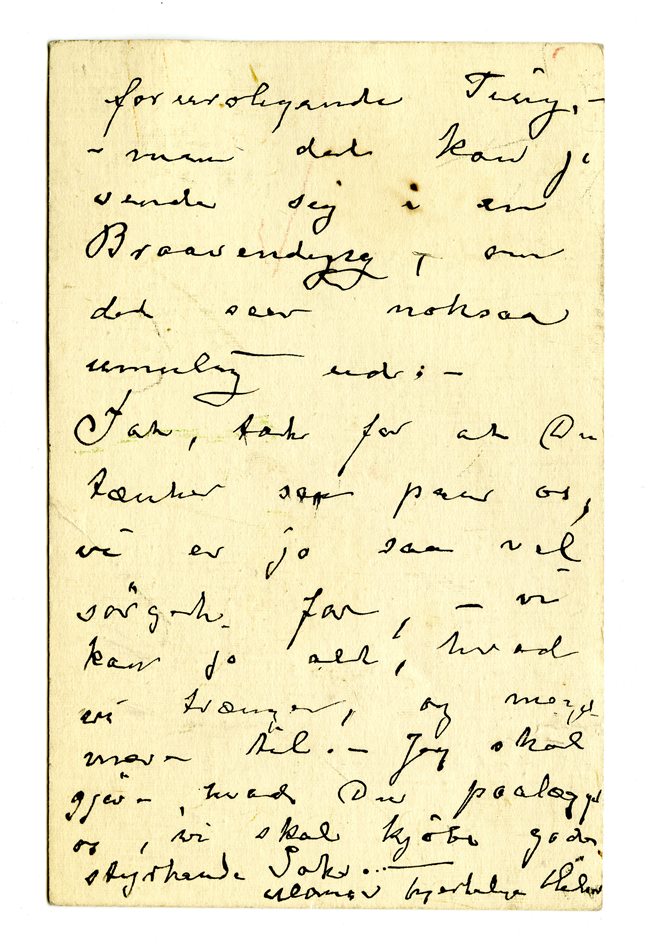 foruroligende Ting, –
– men det kan jo
vende sig i en
Braavending, om
det saa noksaa
umulig ud: –
Tak, tak for at Du
tænker saa paa os,
vi er jo saa vel
sörget for, – vi
kan jo alt, hvad
vi trænger, og meget
mere til. – Jeg skal
gjöre, hvad Du paalægger
os, vi skal kjöbe gode
styrkende Saker. –
hjertelige